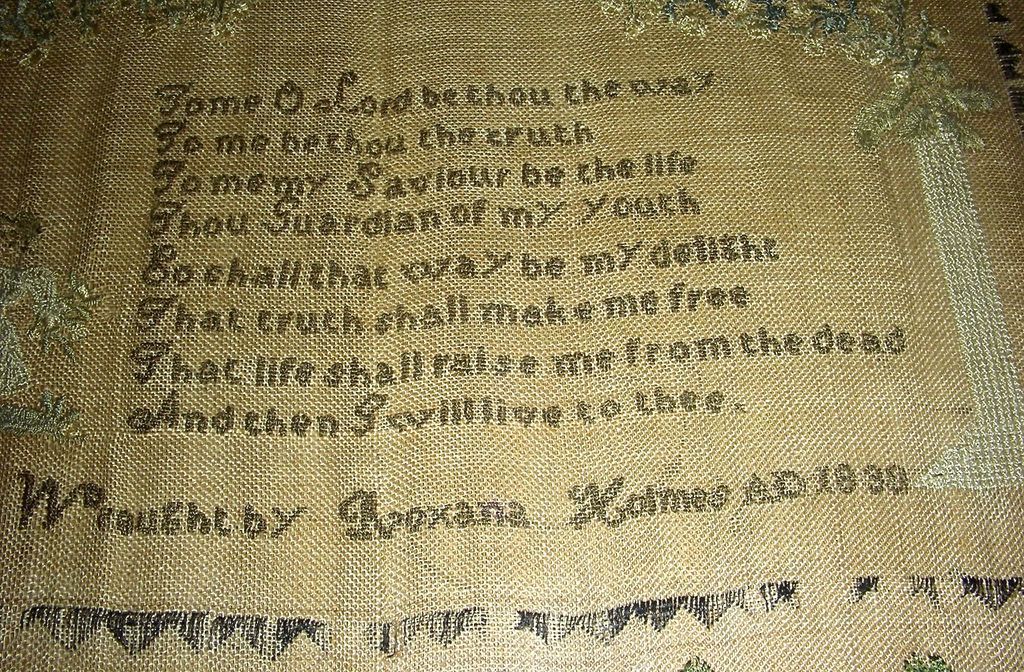 To me O Lord be thou the way
To me be thou the truth
To me my Saviour be the life
Thou Guardian of my youth
So shall that way be my delight
That truth shall make me free
That life shall raise me from the dead
And then I will live to thee.
Wrought by Roxana Holmes AD